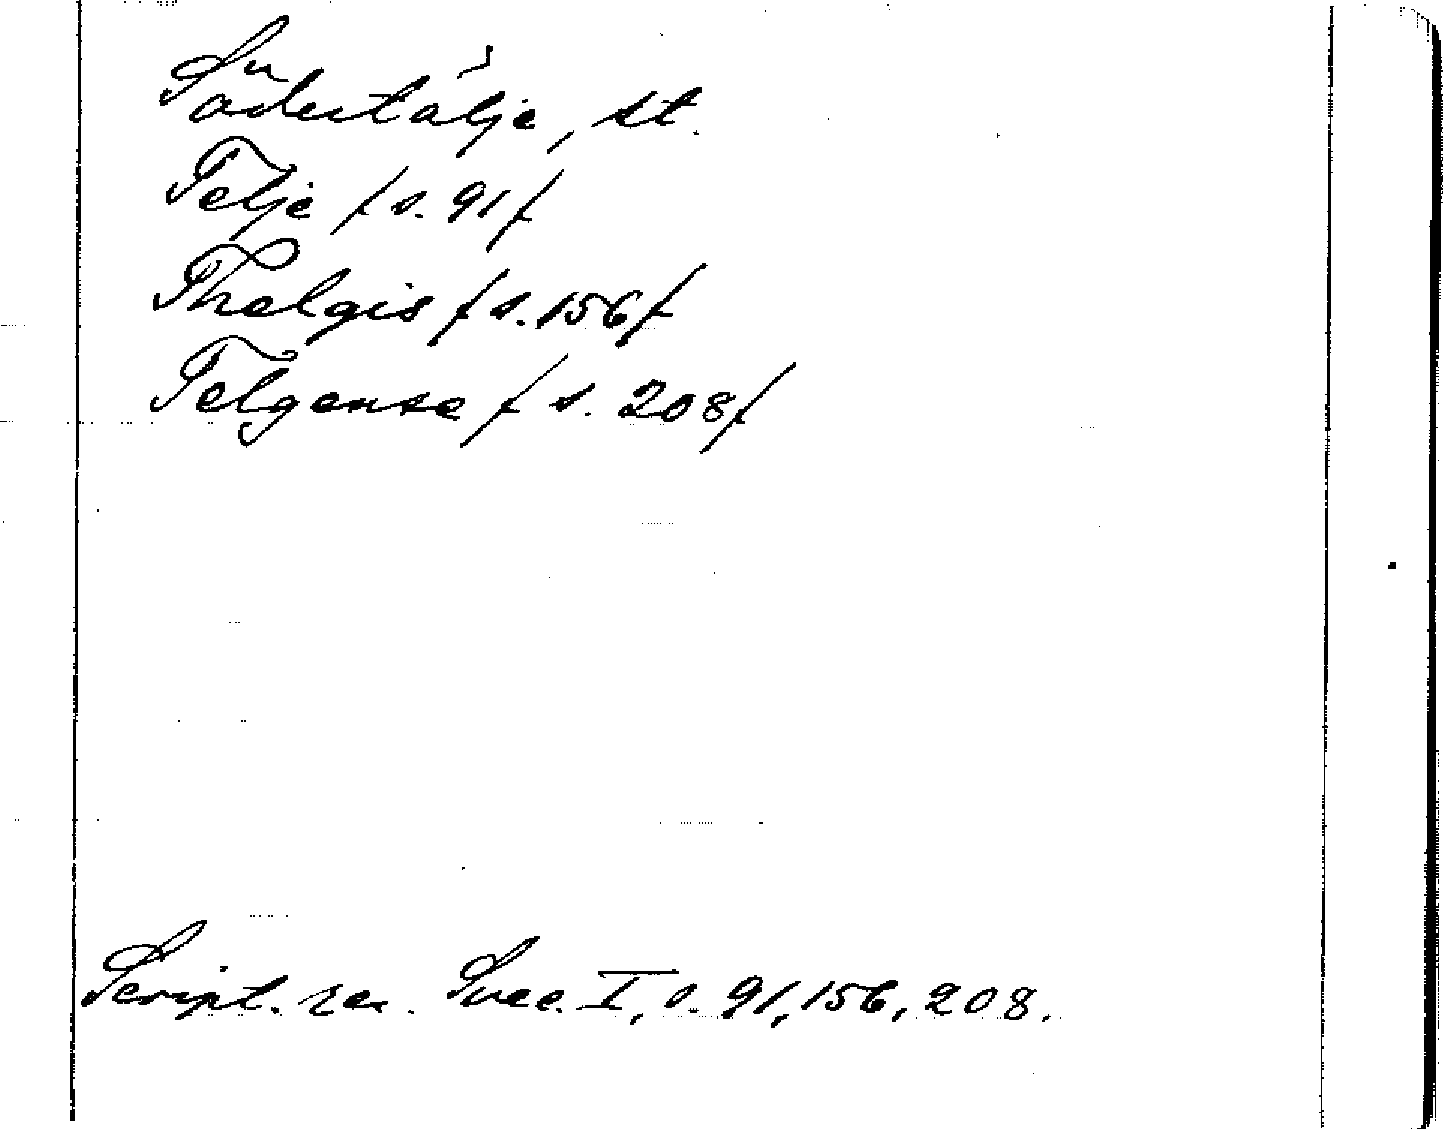 Södertälje, st.
Telje / s. 91 /
Thelgis / s. 156 /
Telgense / s. 208 /
Script. rer. Suec. I, s. 91, 156, 208.